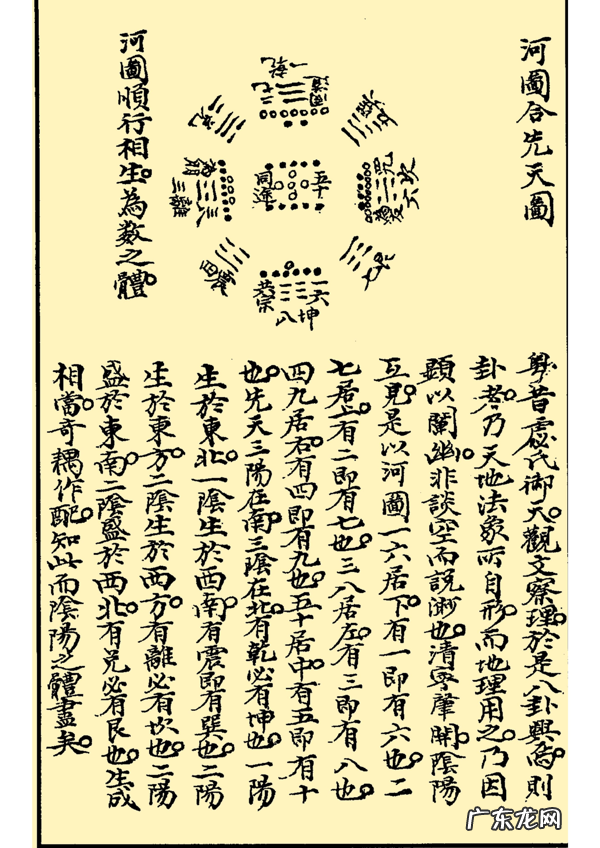 河圖合先天圖
二七
巽五
坎六
五十
同途
三八
為朋
離三
一六
共宗
坤八
河圖順行相生。為数之體。
昔宓氏御天。觀文察理。於是八卦興焉。則
卦者。乃天地法象所自形。而地理用之。乃因
顕以闡幽。非談空而說渺也。清寧肇開。陰陽
互見。是以河圖一六居下。有一即有六也。二
七居上。有二即有七也。三八居左。有三即有八也。
四九居右。有四即有九也。五十居中。有五即有十
也。先天三陽在南。三陰在北。有乾必有坤也。一陽
生於東北。一陰生於西南。有震即有巽也。二陽
生於東方。二陰生於西方。有離必有坎也。二陽
盛於東南。二陰盛於西北。有兑必有艮也。生成
相當。奇耦作配。知此而陰陽之體盡矣。
广东龙网